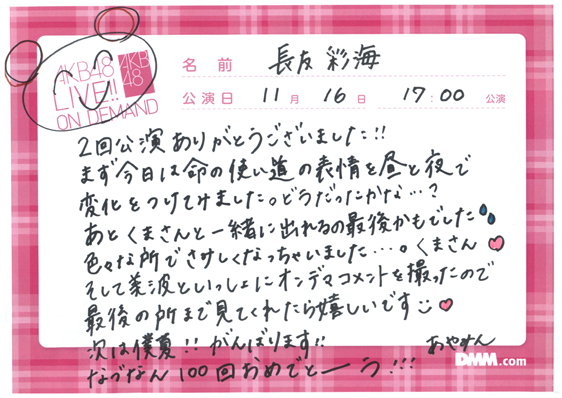 AKB48
LIVE!!
ON DEMAND
AKB
48
名前 長友 彩海
公演日 11月 16日 17:00 公演
2回公演ありがとうございました!!
まず今日は命の使い道の表情を昼と夜で
変化をつけてみました。どうだったかな…?
あとくまさんと一緒に出れるの最後かもでした
色々な所でさみしくなっちゃいました…。くまさん
そして美波といっしょにオンデマコメントを撮ったので
最後の所まで見てくれたら嬉しいです
次は僕夏!! がんばります!!
なづなん100回おめでとーう!!!
あやみん
DMM.com